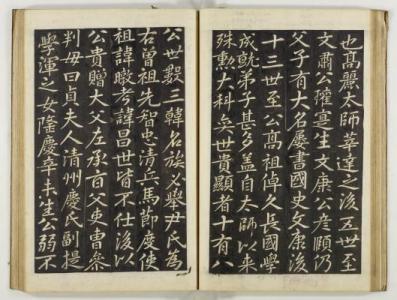 也高麗太師莘達之後五世至
文肅公瓘寔生文康公彥頤仍
父子有大名屢書國史文康後
十三世至公高祖倬久長國學
成就弟子甚多蓋自太師以來
殊勳大科奕世貴顯者十有八
公世數三韓名族必擧尹氏為
右曾祖先智忠清兵馬節度使
祖諱暾考諱昌世皆不仕後以
公貴贈大父左承旨父吏曹參
判母曰貞夫人清州慶氏副提
學渾之女隆慶辛未生公弱不